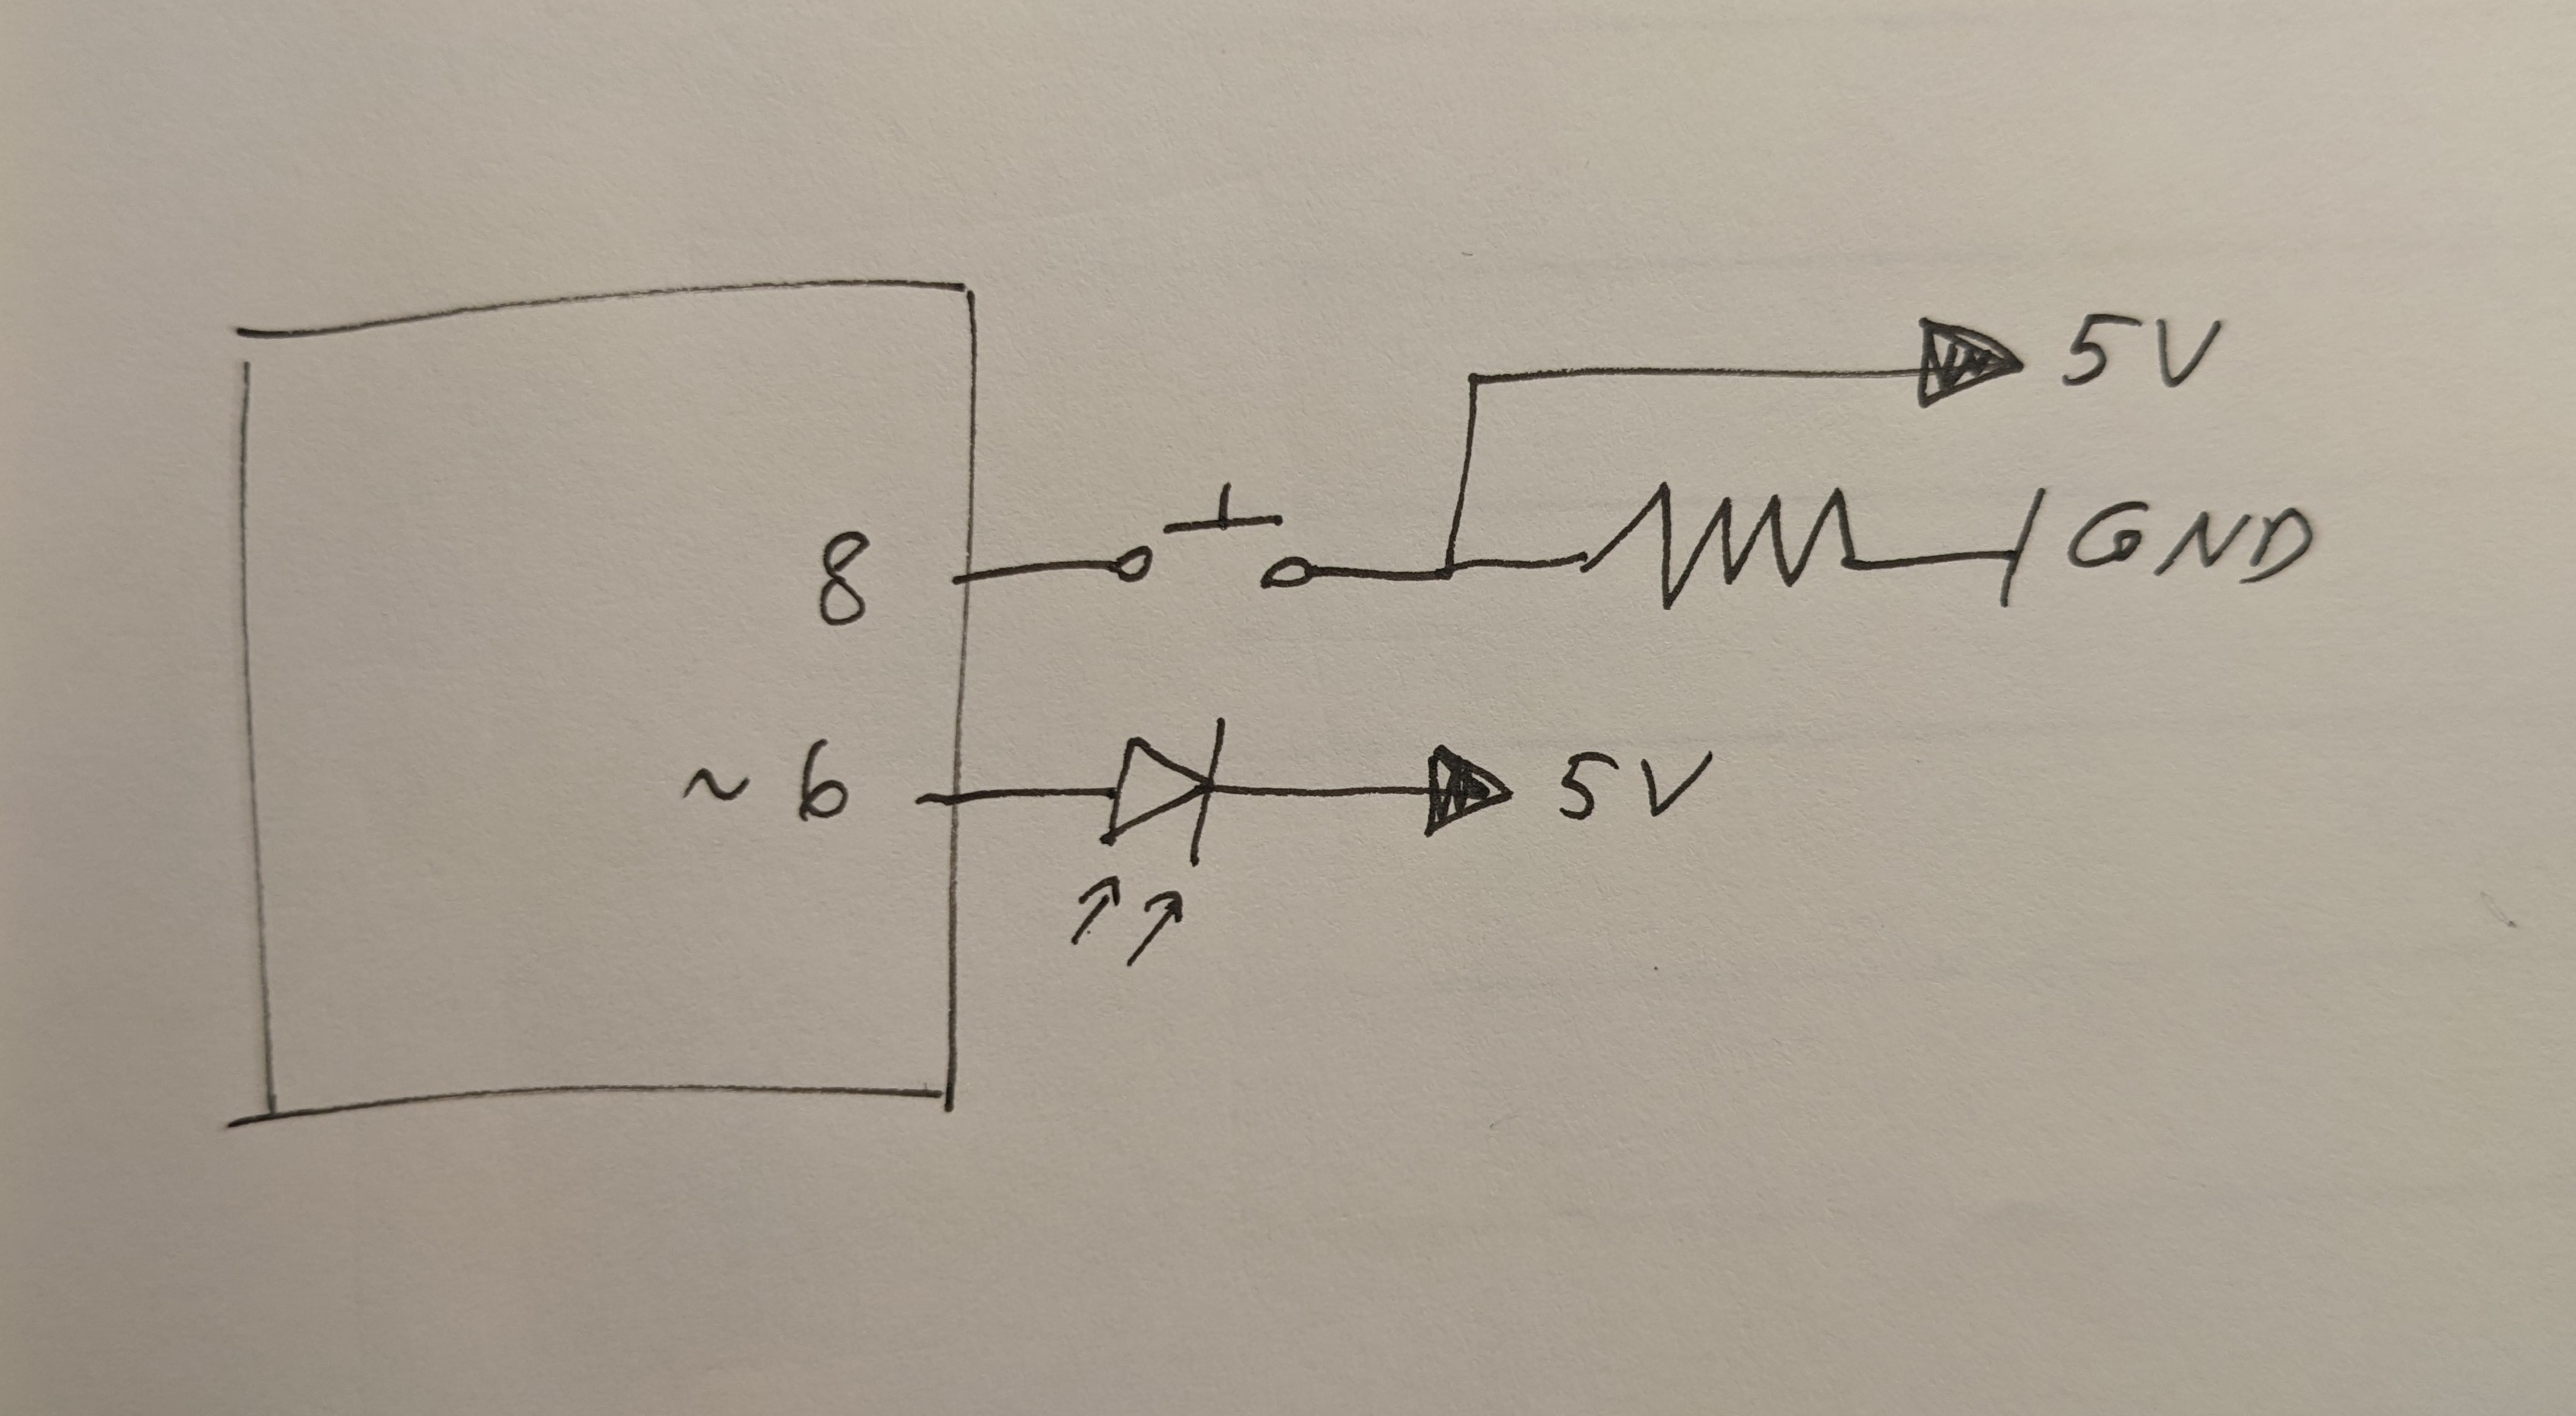 5V
8 GND
~6 5V